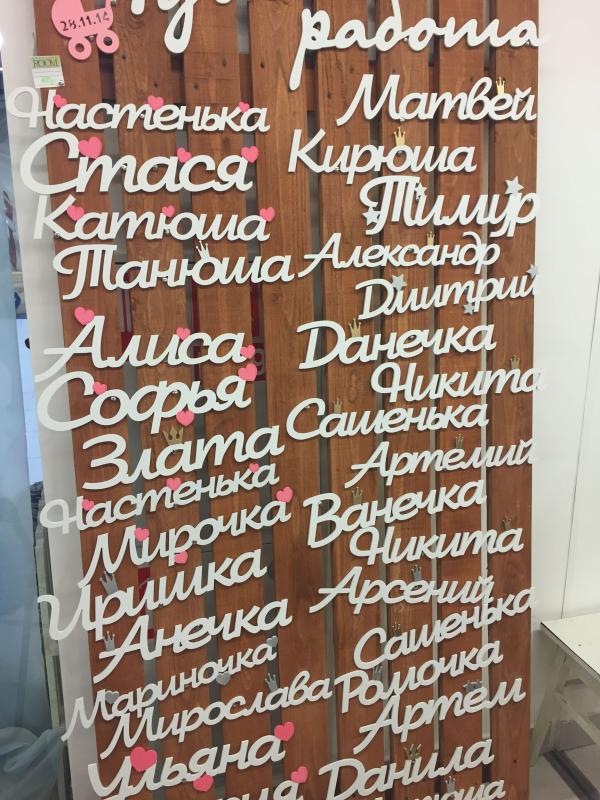 28.11.14
работа
ROOM
Настенька
Матвей
Стася
Кирюша
Катюша
Тимур
Танюша
Александр
Дмитрий
Алиса
Данечка
Софья
Никита
Сашенька
Злата
Артемий
Настенька
Ванечка
Мирочка
Никита
Иришка
Арсений
Анечка
Сашенька
Мариночка
Ромочка
Мирослава
Артем
Ульяна
Данила